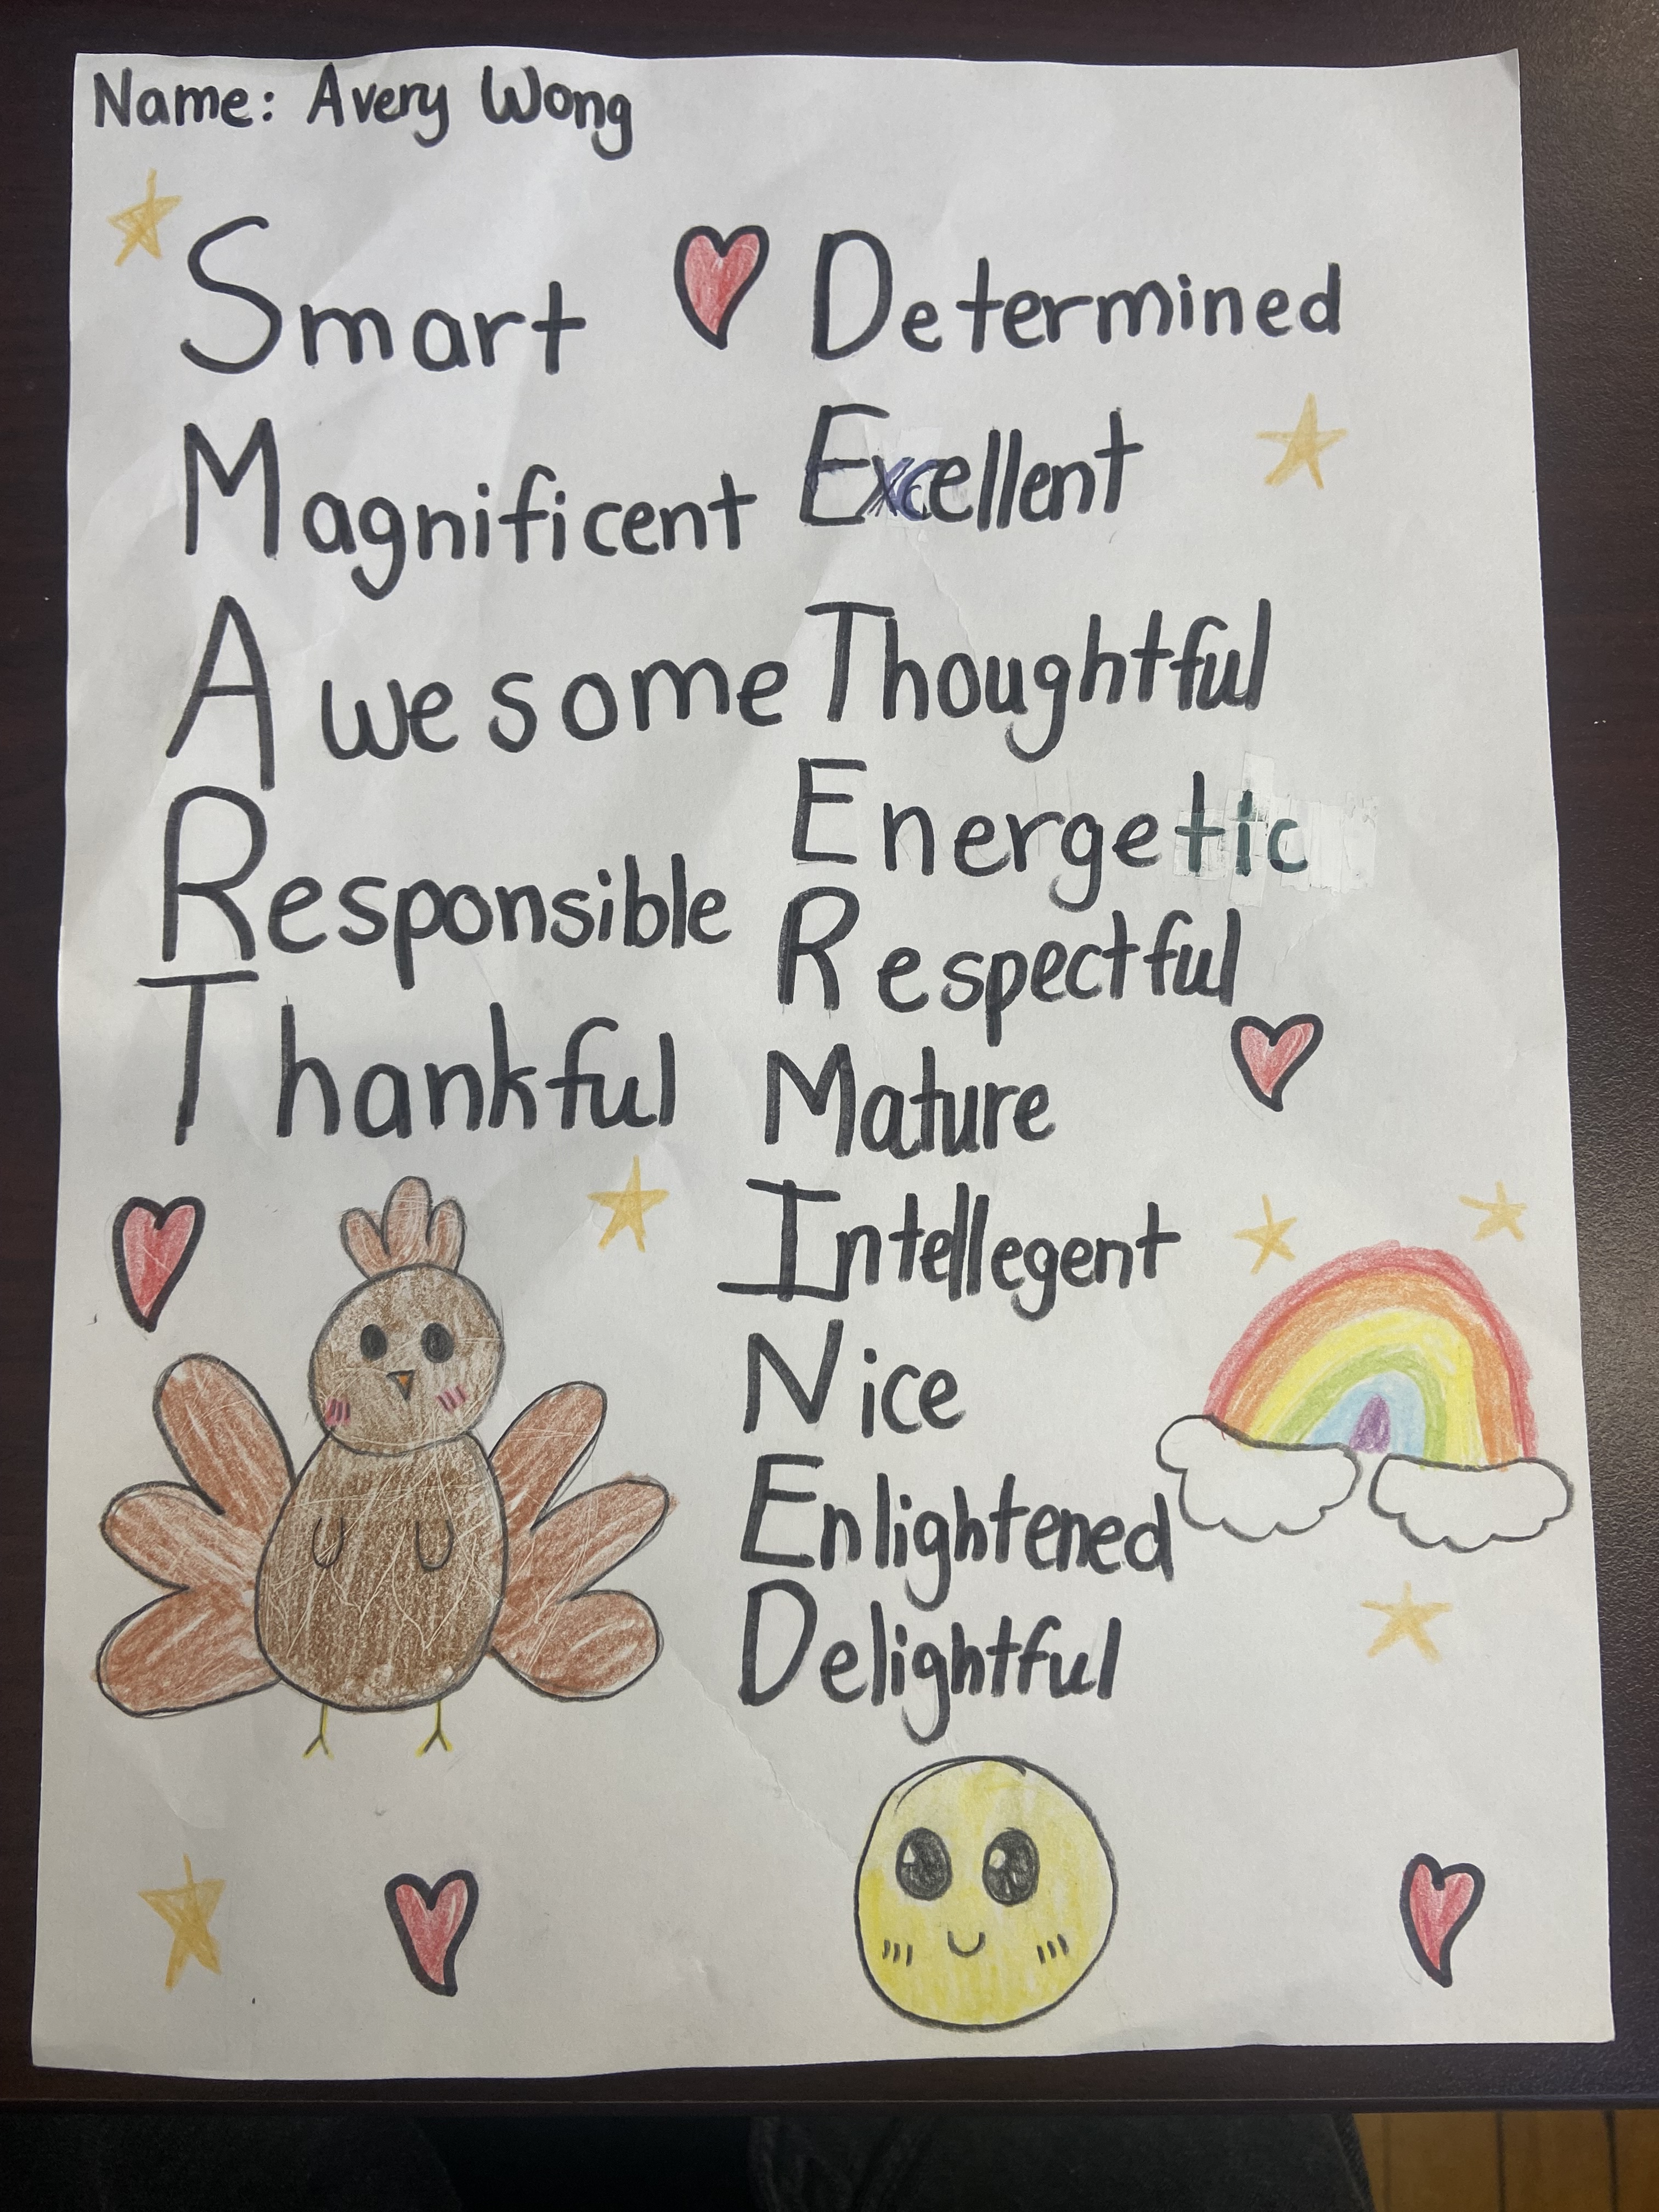 Name: Avery Wong
Smart
Magnificent
Awesome
Responsible
Thankful
Determined
Excellent
Thoughtful
Energetic
Respectful
Mature
Intellegent
Nice
Enlightened
Delightful